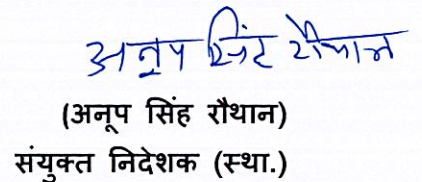 अनूप सिंह रौथान
(अनूप सिंह रौथान)
संयुक्त निदेशक (स्था.)